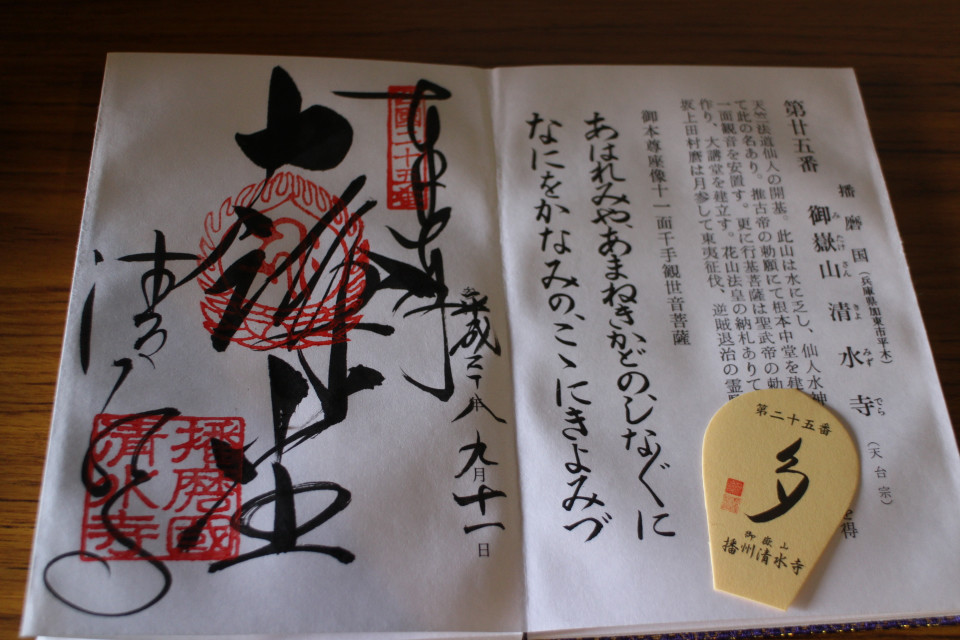 第廿五番
播磨国(兵庫県加東市平木)
御嶽山清水寺(天台宗)
みたけさんきよみずでら
天竺法道仙人の開基。此山は水に乏し、仙人水神
て此の名あり。推古帝の勅願にて根本中堂を建
一面観音を安置す。更に行基菩薩は聖武帝の勅
作り、大講堂を建立す。花山法皇の納札ありて
坂上田村麿は月参して東夷征伐、逆賊退治の霊
御本尊座像十一面千手観世音菩薩
あはれみやあまねきかどのしなぐに
なにをかなみのこゝにきよみづ
第二十五番
多
御嶽山
播州清水寺
西國二十五番
奉拝
平成二十八年九月十一日
大講堂
清水寺
播磨國
清水寺